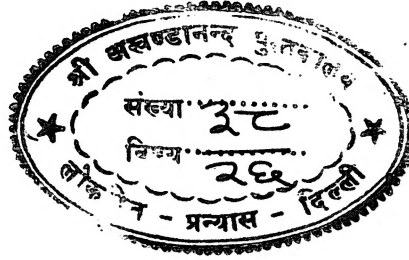 श्री अखण्डानन्द पुस्तकालय
संख्या ३८
विषय २६
- प्रन्यास - दिल्ली